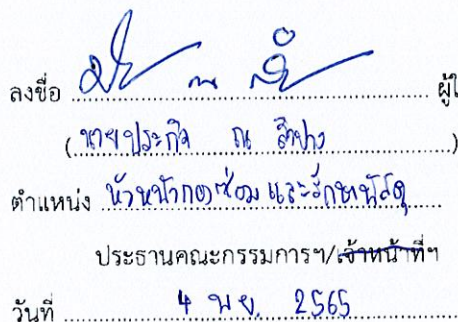 ลงชื่อ ........................ ผู้ใ
(นายประกิจ ณ ลำปาง)
ตำแหน่ง หัวหน้ากองซ่อม และรักษาพัสดุ
ประธานคณะกรรมการฯ/เจ้าหน้าที่ฯ
วันที่ 4 พ.ย. 2565